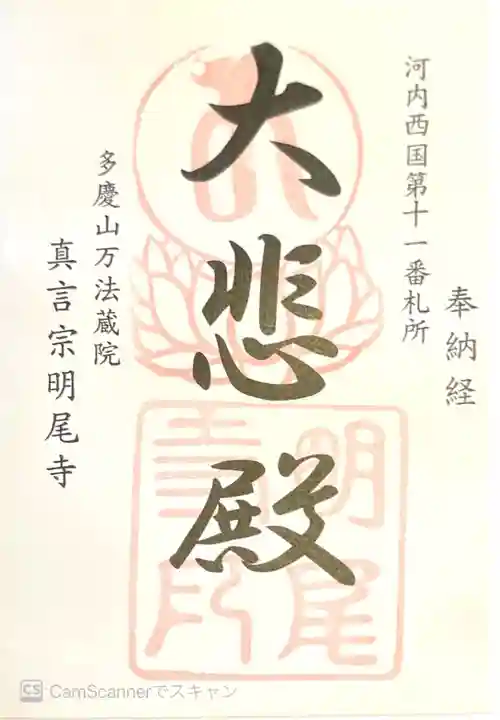 奉納経
河内西国第十一番札所
大悲殿
多慶山万法蔵院
真言宗明尾寺
明尾
CS CamScannerでスキャン